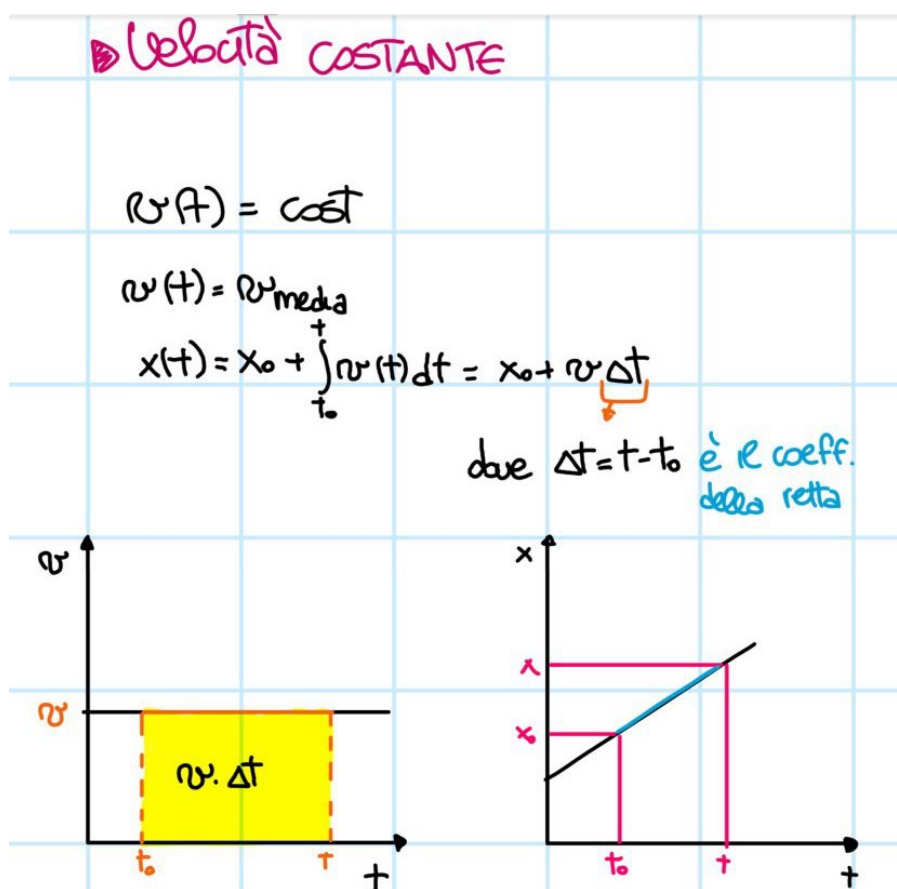 Velocità COSTANTE
v(t) = cost
v(t) = v media
x(t) = x₀ + ∫ₜ₀ᵗ v(t) dt = x₀ + v Δt
dove Δt = t - t₀ è il coeff.
della retta
v
v
v · Δt
t₀ t
t
x
x
x₀
t₀ t
t